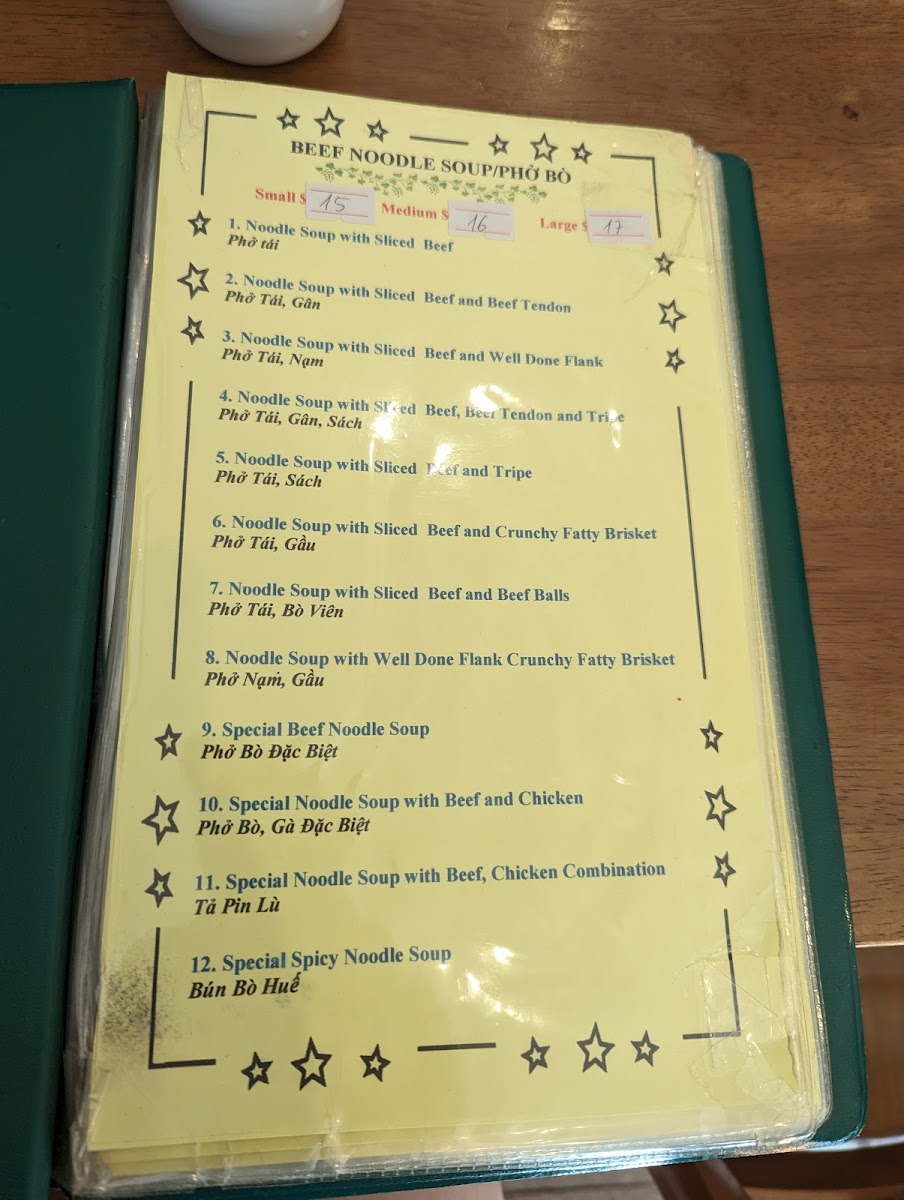 BEEF NOODLE SOUP/PHỞ BÒ
Small $ 15 Medium $ 16 Large $ 17
1. Noodle Soup with Sliced Beef
Phở tái
2. Noodle Soup with Sliced Beef and Beef Tendon
Phở Tái, Gân
3. Noodle Soup with Sliced Beef and Well Done Flank
Phở Tái, Nạm
4. Noodle Soup with Sliced Beef, Beef Tendon and Tripe
Phở Tái, Gân, Sách
5. Noodle Soup with Sliced Beef and Tripe
Phở Tái, Sách
6. Noodle Soup with Sliced Beef and Crunchy Fatty Brisket
Phở Tái, Gầu
7. Noodle Soup with Sliced Beef and Beef Balls
Phở Tái, Bò Viên
8. Noodle Soup with Well Done Flank Crunchy Fatty Brisket
Phở Nạm, Gầu
9. Special Beef Noodle Soup
Phở Bò Đặc Biệt
10. Special Noodle Soup with Beef and Chicken
Phở Bò, Gà Đặc Biệt
11. Special Noodle Soup with Beef, Chicken Combination
Tả Pin Lù
12. Special Spicy Noodle Soup
Bún Bò Huế